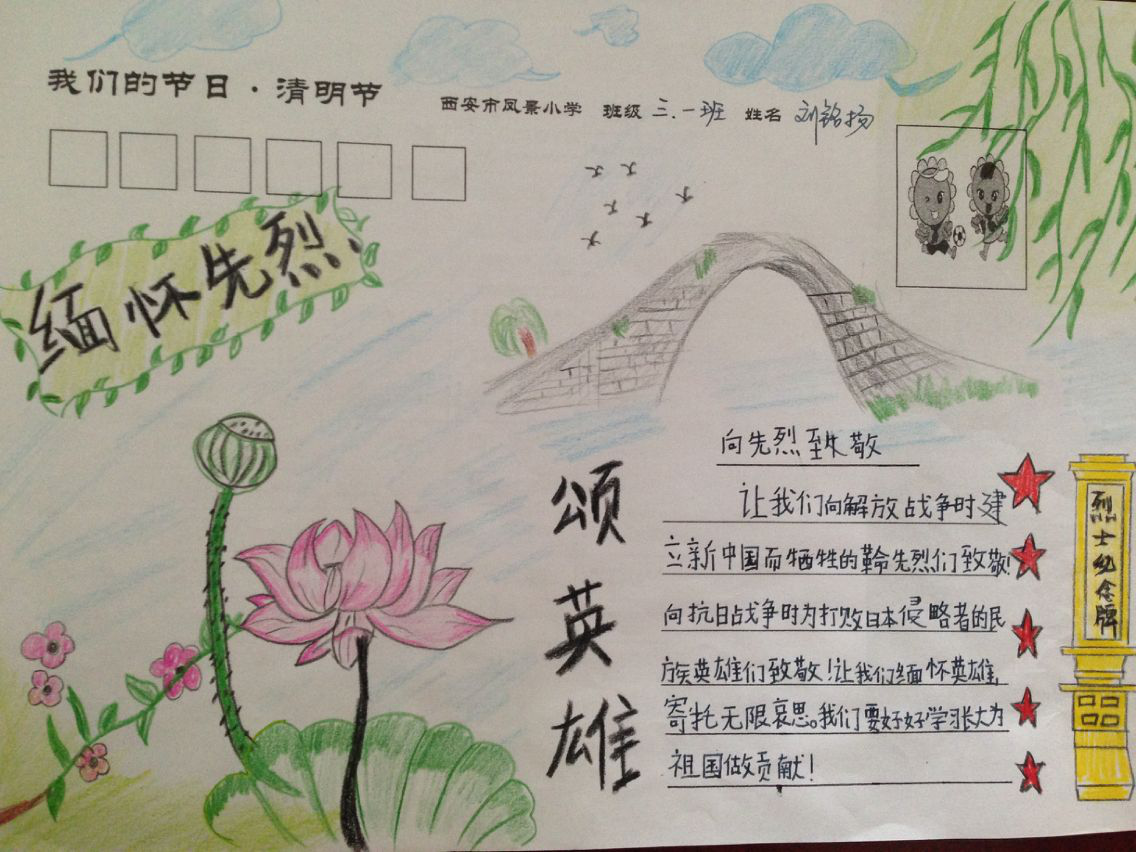 我们的节日·清明节
西安市凤景小学 班级 三.一班 姓名 刘铭扬
缅怀先烈
颂英雄
向先烈致敬
让我们向解放战争时建
立新中国而牺牲的革命先烈们致敬!
向抗日战争时为打败日本侵略者的民
族英雄们致敬!让我们缅怀英雄,
寄托无限哀思。我们要好好学习张大为
祖国做贡献!
烈士纪念牌